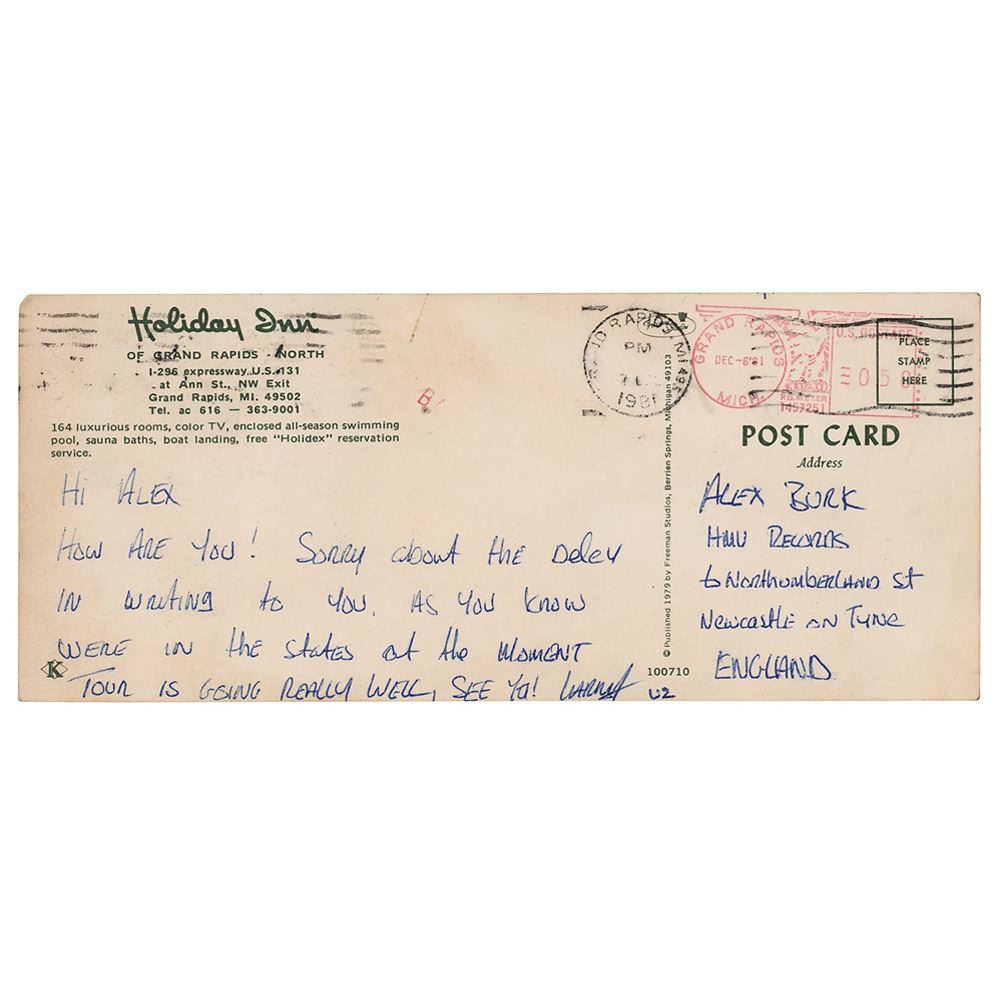 Holiday Inn
OF GRAND RAPIDS - NORTH
I-296 expressway U.S. 131
at Ann St., NW Exit
Grand Rapids, MI. 49502
Tel. ac 616 — 363-9001
164 luxurious rooms, color TV, enclosed all-season swimming
pool, sauna baths, boat landing, free "Holidex" reservation
service.
Hi ALEX
HOW ARE YOU! SORRY about the Deley
IN WRITING to YOU. AS YOU KNOW
WERE IN the States at the MOMENT
TOUR IS GOING REALLY WELL, SEE YA! LARRY U2
K
© Published 1979 by Freeman Studios, Berrien Springs, Michigan 49103
100710
RAPIDS MI 495
PM
1981
GRAND RAPIDS
DEC-6'81
MICH.
P.B. METER
1457251
U.S. POSTAGE
PLACE
STAMP
HERE
POST CARD
Address
ALEX BURK
HMV RECORDS
6 NORTHUMBERLAND St
NEWCASTLE ON TYNE
ENGLAND